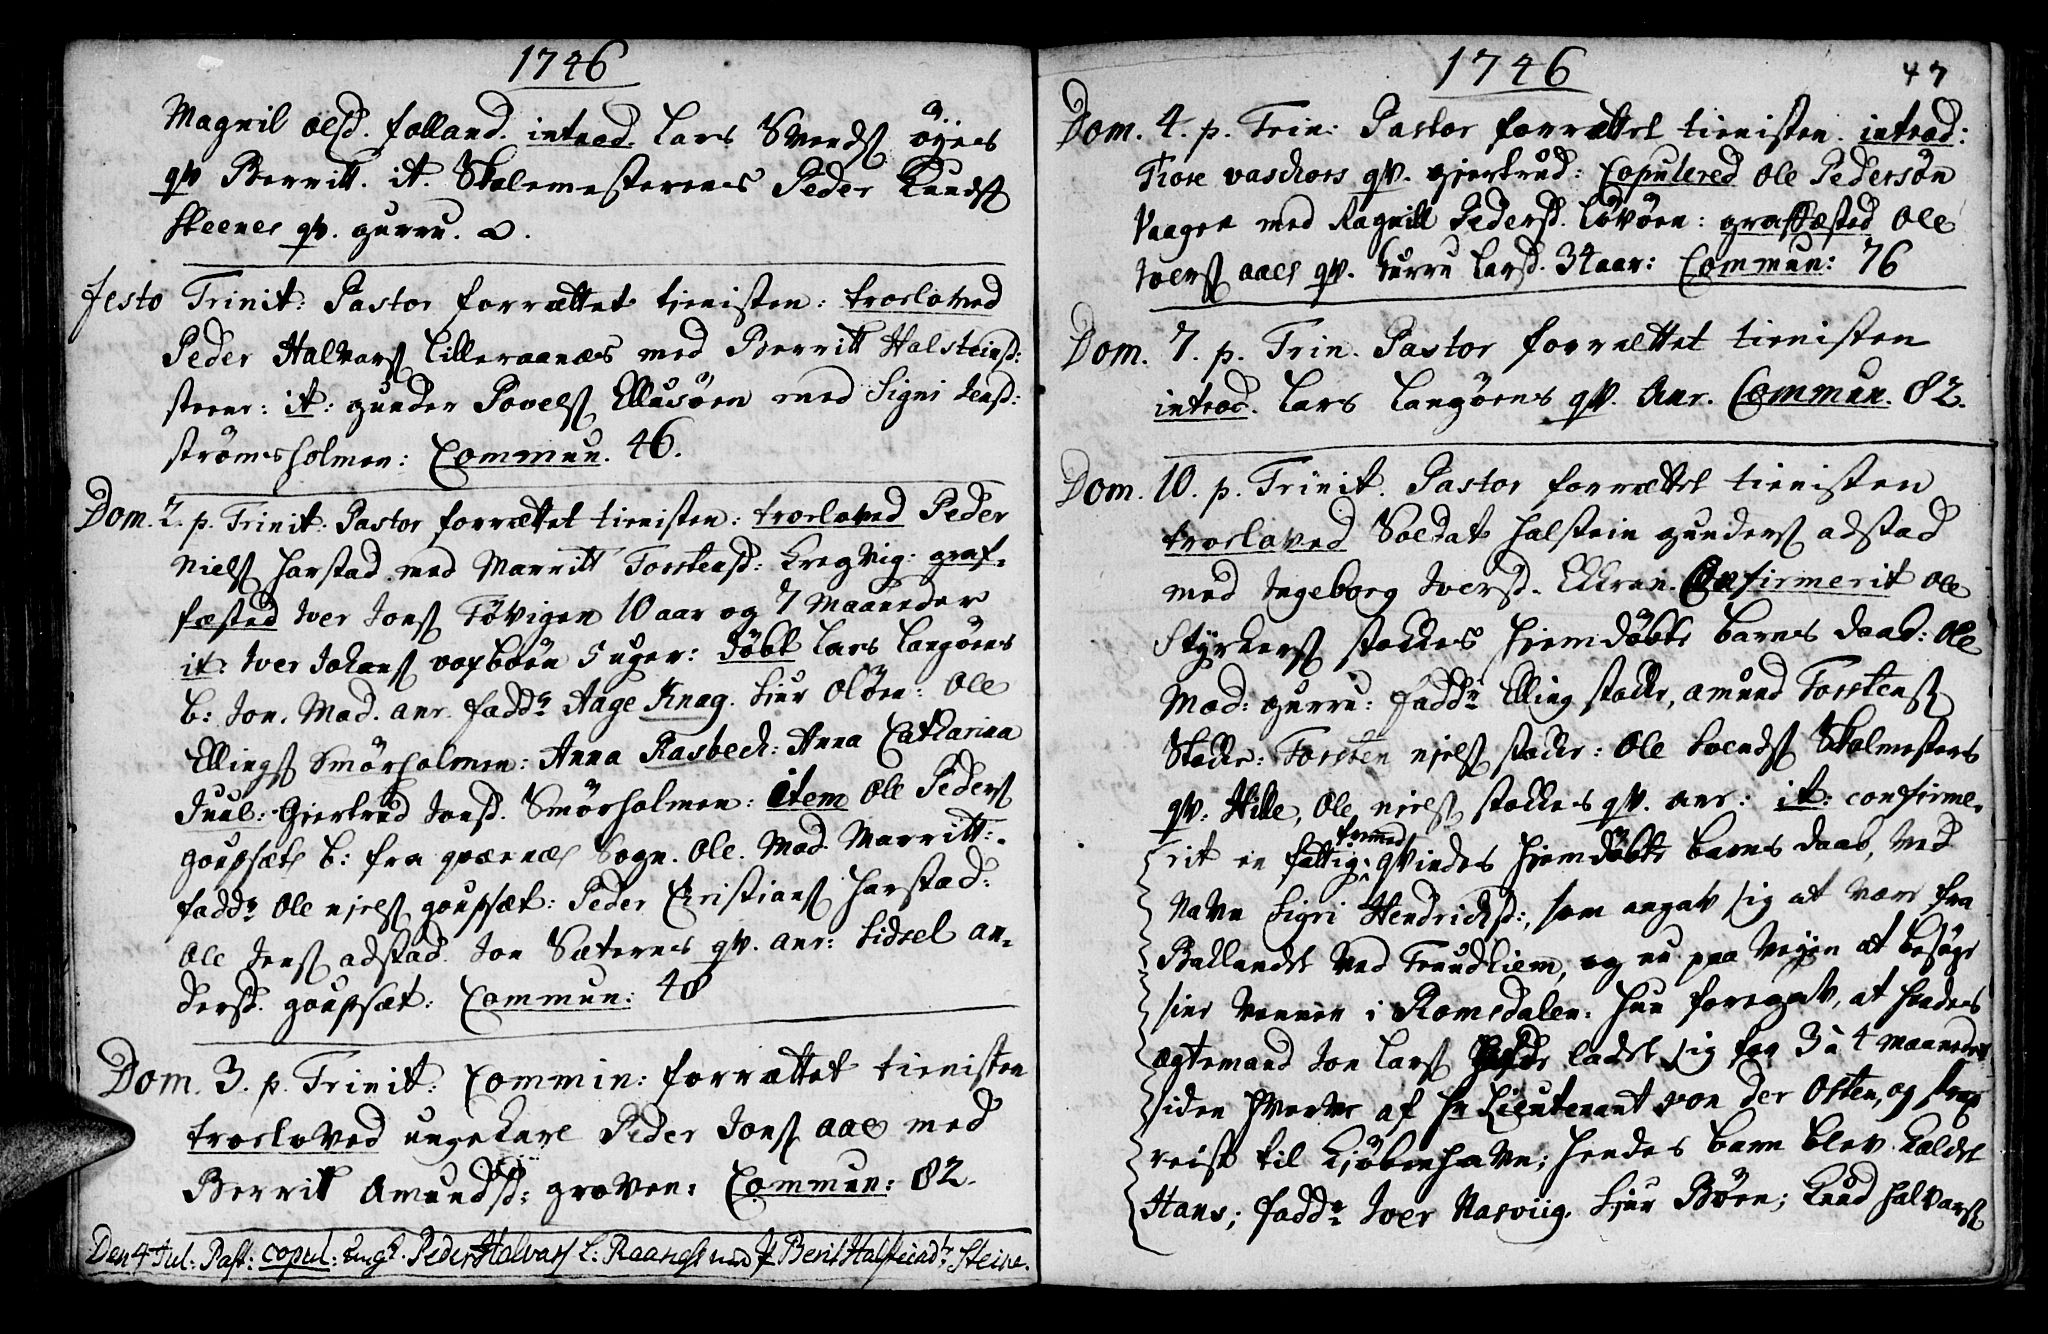 1746
Magnil Olsd. folland. introd. Lars Svends øyes
qv Berritt. it. Skolemesterens Peder Knuds
skeenes qv. gurru.
festo Trinit: Pastor forrættet tienisten: troloved
Peder Halvars Lilleraanæs med Berritt Halsteinsd:
steene: it: gunder Povels Ellusøen med Signi Jensd:
strømsholmen: Commun. 46.
Dom. 2. p. Trinit: Pastor forrættet tienisten: troloved Peder
Niels harstad med Marritt Torstensd: Kregvig: graf-
fæsted Iver Jons Tøvigen 10 aar og 7 Maaneder
it: Iver Johans vopbøen 5 uger: døbt Lars Langøens
b: Jon. Mod. anr. fadd. Aage Knag. Siur Oløen: Ole
Ellings Smørholmen: Anna Rasbech: Anna Catharina
Juul: Giertrud Jonsd. Smørholmen: item Ole Peders
goupsæts b: fra qværnæs Sogn. Ole. Mod. Marritt:
fadd. Ole njels goupsæt: Peder Christians harstad:
Ole Jens adstad. Jon Sæternes qv. anr: Sidsel an-
dersd. goupsæt: Commun: 48
Dom. 3. p. Trinit: Commin: forrættet tienisten
trolovved unge karl Peder Jons aae med
Berrit Amundsd: groven: Commun: 82.
Den 4 Jul: Past: copul: ung k. Peder Halvars L: Raanæs med P Berit Halsteind. Steine.
1746 47
Dom. 4. p. Trin: Pastor forrættet tienisten. introd:
Tore vaschors qv. gjertrud: Copulered Ole Pedersøn
Vaagen med Ragnill Pedersd. Løvøen: graffæsted Ole
Ivers aaes qv. Gurru Larsd. 34 aar: Commun: 76
Dom. 7. p. Trin. Pastor forrættet tienisten
introd. Lars Langøens qv. Anr. Commun. 82.
Dom. 10. p. Trinit. Pastor forrættet tienisten
trolovved Soldat halstein gunders adstad
med Ingeborg Iversd. Eikran. Confirmerit Ole
Styrkers stockes hjemdøbte barns daab: Ole
Mod: gurru: fadd. Elling stocke, amund Torstens
Stocke: Torsten njels stocke: Ole Svends Skolmesters
qv. Hille, Ole njels stockes qv. anr: it: confirme-
rit en fattig fremmed qvindes hjemdøbte barns daab, ved
Navn Sigri Hendrichsd:, som angav sig at være fra
Ballandet ved Trundhiem, og nu paa veyen at besøge
sine venner i Romsdalen: hun foregav, at hendes
ægtemand Jon Lars ladet sig for 3 à 4 maaneder
siden hverve af Hr Lieutenant von der Osten, og strax
reist til Kjøbenhavn; hendes barn blev kaldet
Hans; fadd. Iver Nasviig. Siur Bøen; Knud halvars